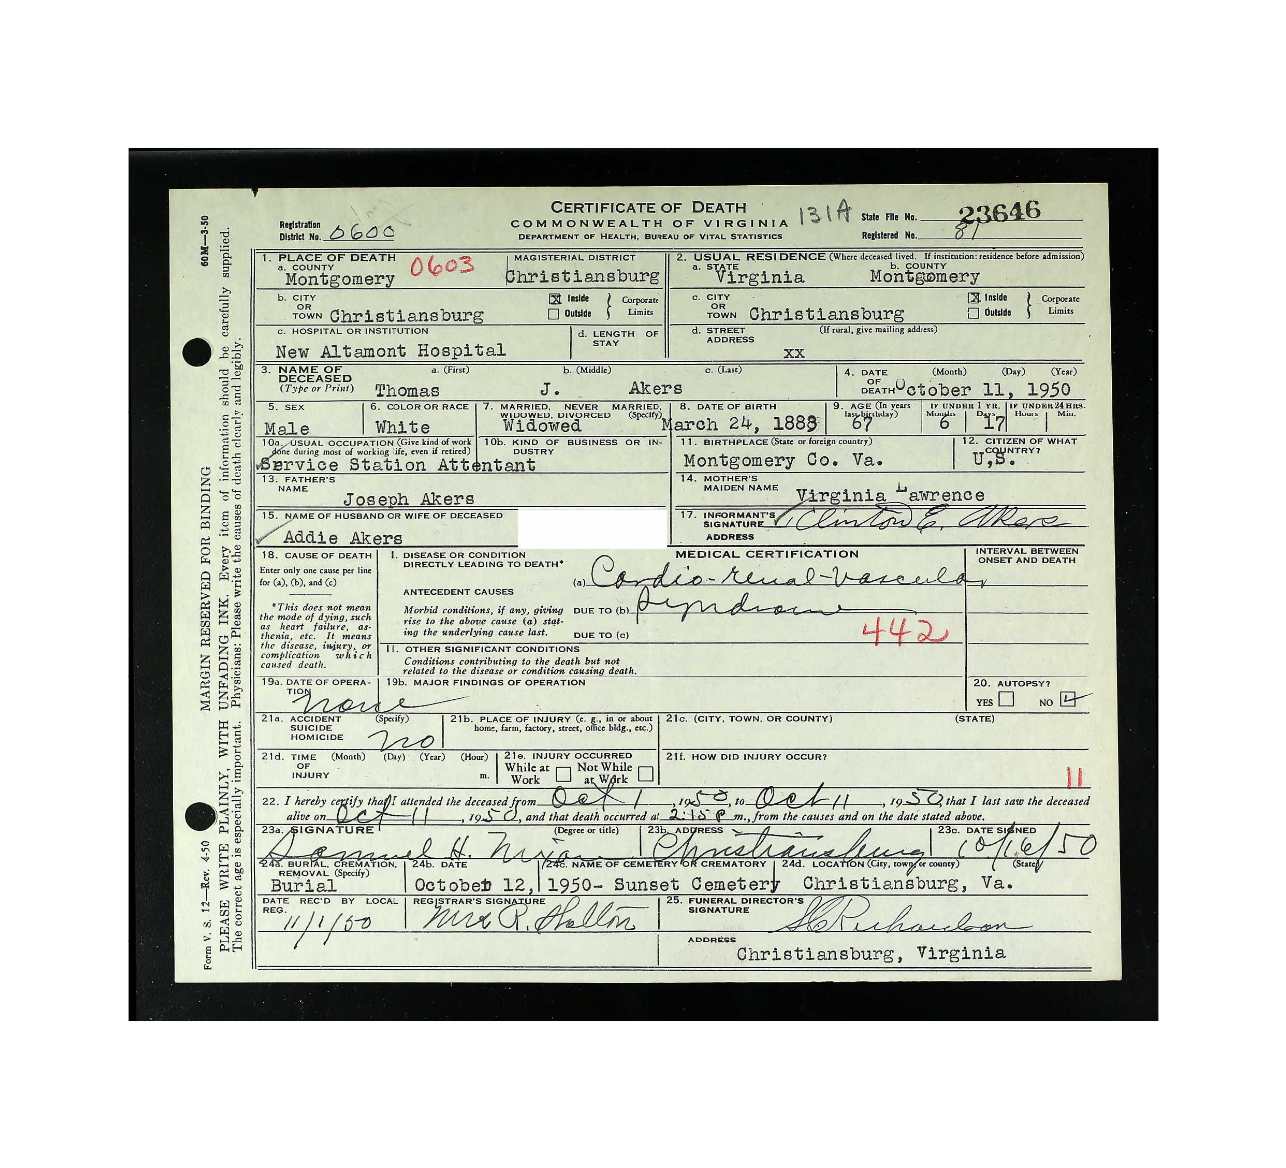 CERTIFICATE OF DEATH
COMMONWEALTH OF VIRGINIA
DEPARTMENT OF HEALTH, BUREAU OF VITAL STATISTICS
131A
Registration District No. 0600
State File No. 23646
Registered No. 81
60M—3-50
MARGIN RESERVED FOR BINDING
PLEASE WRITE PLAINLY, WITH UNFADING INK. Every item of information should be carefully supplied.
The correct age is especially important. Physicians: Please write the causes of death clearly and legibly.
Form V. S. 12—Rev. 4-50
1. PLACE OF DEATH
a. COUNTY
Montgomery 0603
MAGISTERIAL DISTRICT
Christiansburg
2. USUAL RESIDENCE (Where deceased lived. If institution: residence before admission)
a. STATE
Virginia
b. COUNTY
Montgomery
b. CITY OR TOWN Christiansburg
Inside
Outside
Corporate Limits
c. CITY OR TOWN Christiansburg
Inside
Outside
Corporate Limits
c. HOSPITAL OR INSTITUTION
New Altamont Hospital
d. LENGTH OF STAY
d. STREET ADDRESS
(If rural, give mailing address)
xx
3. NAME OF DECEASED
(Type or Print)
a. (First)
b. (Middle)
c. (Last)
Thomas J. Akers
4. DATE OF DEATH
(Month) (Day) (Year)
October 11, 1950
5. SEX
Male
6. COLOR OR RACE
White
7. MARRIED, NEVER MARRIED, WIDOWED, DIVORCED (Specify)
Widowed
8. DATE OF BIRTH
March 24, 1883
9. AGE (In years last birthday)
67
IF UNDER 1 YR.
Months Days
6 17
IF UNDER 24 HRS.
Hours Min.
10a. USUAL OCCUPATION (Give kind of work done during most of working life, even if retired)
Service Station Attentant
10b. KIND OF BUSINESS OR INDUSTRY
11. BIRTHPLACE (State or foreign country)
Montgomery Co. Va.
12. CITIZEN OF WHAT COUNTRY?
U.S.
13. FATHER'S NAME
Joseph Akers
14. MOTHER'S MAIDEN NAME
Virginia Lawrence
15. NAME OF HUSBAND OR WIFE OF DECEASED
Addie Akers
17. INFORMANT'S SIGNATURE Clinton E. Akers
ADDRESS
18. CAUSE OF DEATH
Enter only one cause per line for (a), (b), and (c)
*This does not mean the mode of dying, such as heart failure, asthenia, etc. It means the disease, injury, or complication which caused death.
MEDICAL CERTIFICATION
INTERVAL BETWEEN ONSET AND DEATH
I. DISEASE OR CONDITION DIRECTLY LEADING TO DEATH*
(a) Cardio-renal-vascular
ANTECEDENT CAUSES
Morbid conditions, if any, giving rise to the above cause (a) stating the underlying cause last.
DUE TO (b) Syndrome
DUE TO (c)
442
II. OTHER SIGNIFICANT CONDITIONS
Conditions contributing to the death but not related to the disease or condition causing death.
19a. DATE OF OPERATION
None
19b. MAJOR FINDINGS OF OPERATION
20. AUTOPSY?
YES NO
21a. ACCIDENT SUICIDE HOMICIDE
(Specify)
no
21b. PLACE OF INJURY (e. g., in or about home, farm, factory, street, office bldg., etc.)
21c. (CITY, TOWN, OR COUNTY) (STATE)
21d. TIME OF INJURY
(Month) (Day) (Year) (Hour)
m.
21e. INJURY OCCURRED
While at Work
Not While at Work
21f. HOW DID INJURY OCCUR?
11
22. I hereby certify that I attended the deceased from Oct 1, 1950, to Oct 11, 1950 that I last saw the deceased
alive on Oct 11, 1950, and that death occurred at 2:15 P m., from the causes and on the date stated above.
23a. SIGNATURE
(Degree or title)
Samuel H. Nixon
23b. ADDRESS
Christiansburg
23c. DATE SIGNED
10/16/50
24a. BURIAL, CREMATION, REMOVAL (Specify)
Burial
24b. DATE
October 12, 1950-
24c. NAME OF CEMETERY OR CREMATORY
Sunset Cemetery
24d. LOCATION (City, town, or county) (State)
Christiansburg, Va.
DATE REC'D BY LOCAL REG.
11/1/50
REGISTRAR'S SIGNATURE
25. FUNERAL DIRECTOR'S SIGNATURE
Richardson
ADDRESS
Christiansburg, Virginia